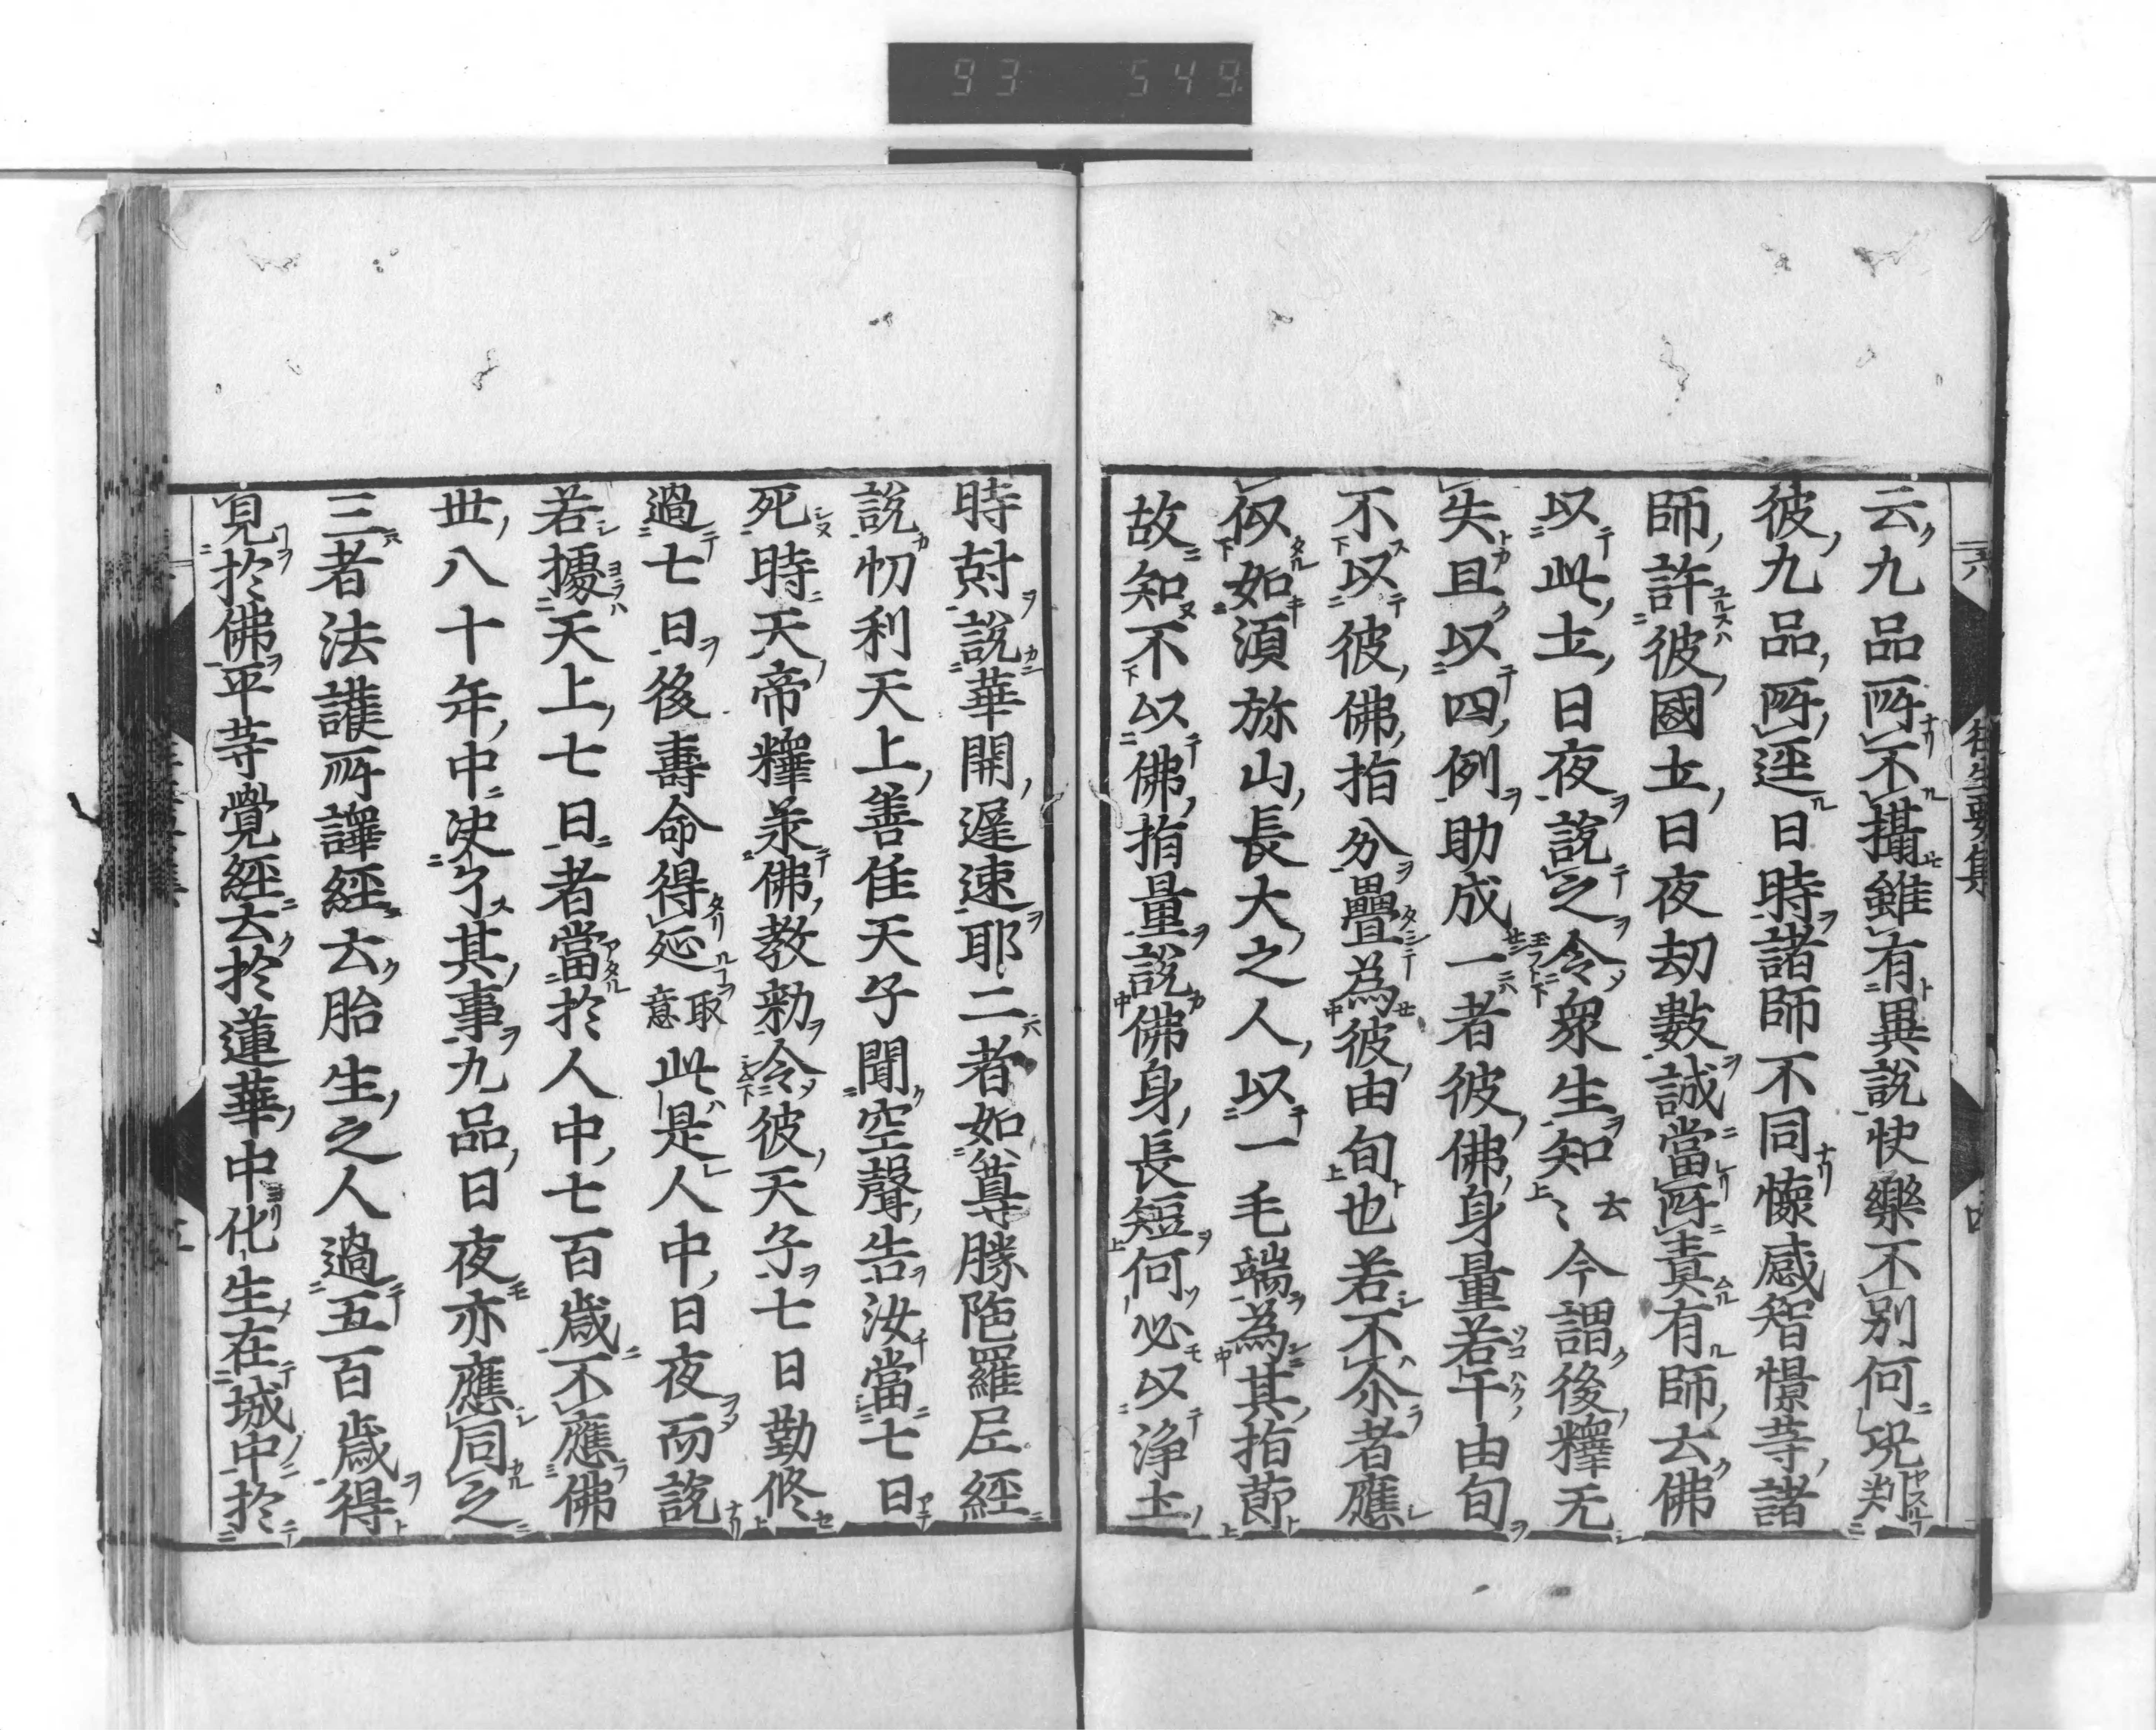 93 549
云九品所不攝雖有異説快樂不別何況判
彼九品所逕日時諸師不同懷感智憬等諸
師許彼國土日夜劫數誠當所責有師云佛
以此土日夜説之令衆生知云〻今謂後釋无
失且以四例助成一者彼佛身量若干由旬
不以彼佛指分疊為彼由旬也若不尒者應
似如湏弥山長大之人以一毛端為其指莭
故知不以佛指量説佛身長短何必以淨土
時尅説華開遲速耶二者如尊勝陁羅尼經
説忉利天上善住天子聞空聲告汝當七日
死時天帝釋承佛教勑令彼天子七日勤修
過七日後壽命得延取意此是人中日夜而説
若據天上七日者當於人中七百歳不應佛
世八十年中决了其事九品日夜亦應同之
三者法護所譯經云胎生之人過五百歳得
見於佛平等覺經云於蓮華中化生在城中於
往生要集